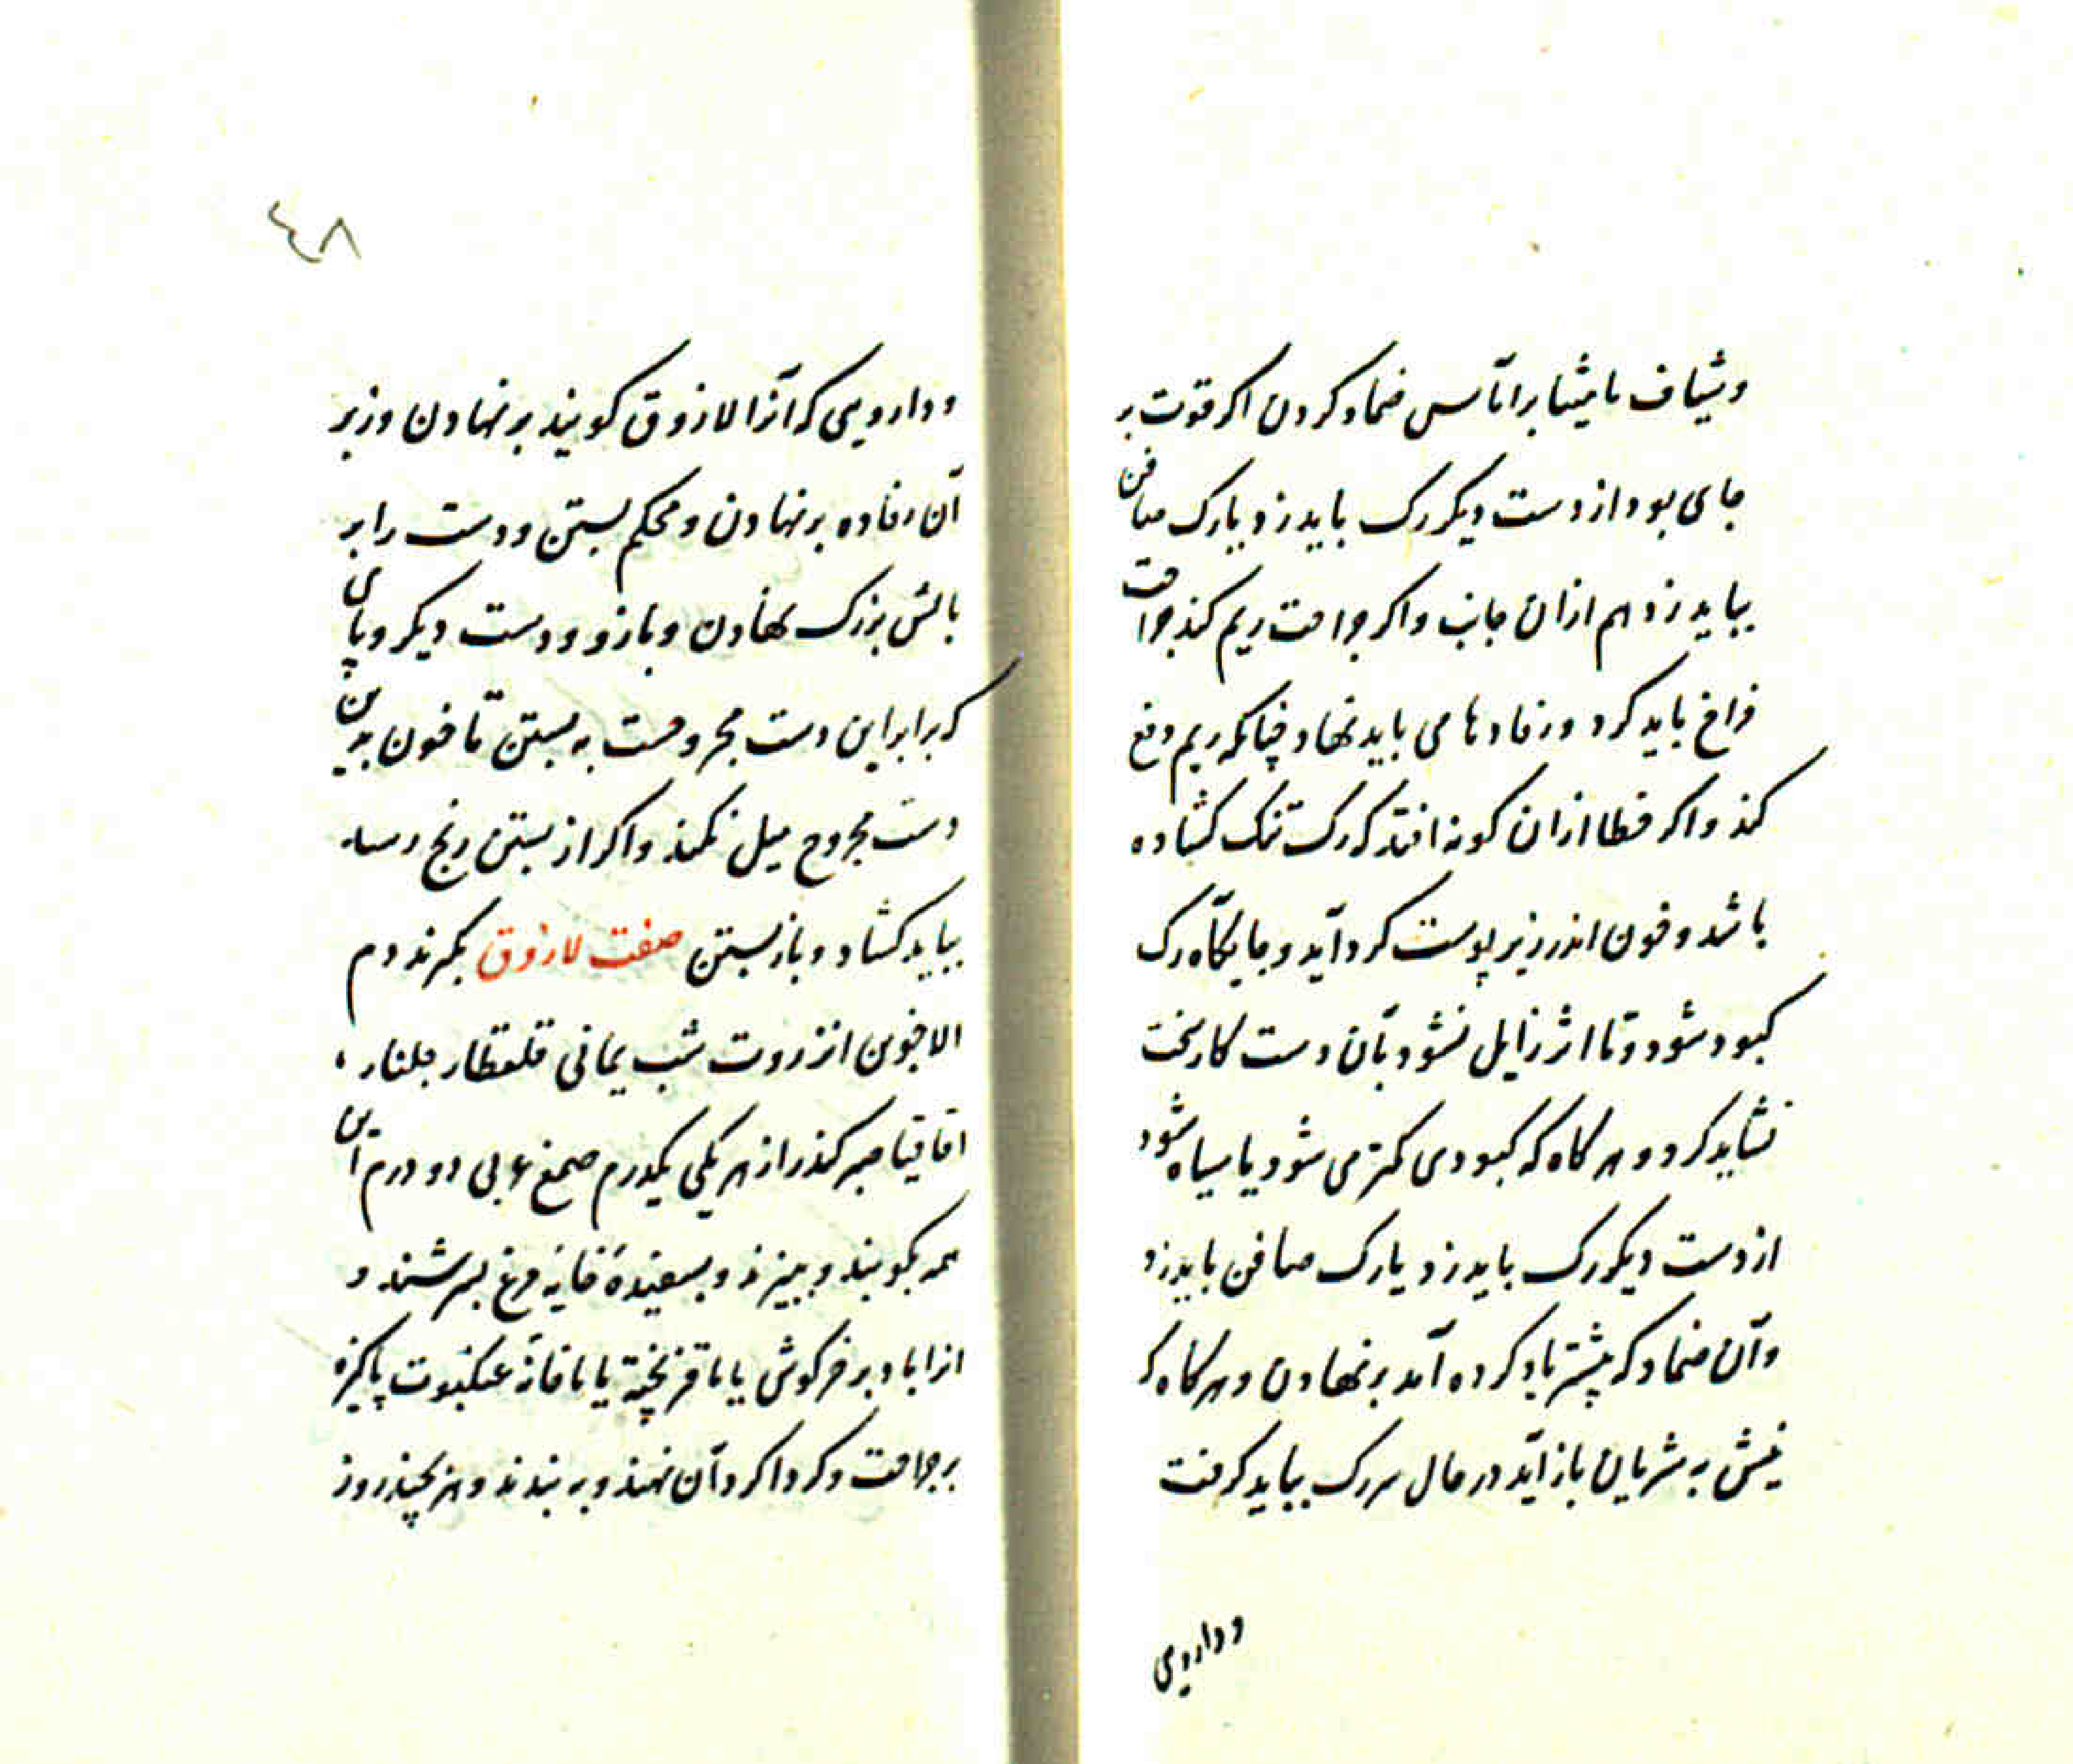 وشیاف مامیثا بر آماس ضماد کردن اکر قوت بر
جای بود از دست دیکر رک باید زد یا رک صافن
بباید زد هم ازان جانب واکر جراحت ریم کند جراحت
فراخ باید کرد ورفادها می باید نهاد چنانکه ریم دفع
کند واکر خطا ازان کونه افتد که رک تنک کشاده
باشد وخون اندر زیر پوست کرد آید وجایکاه رک
کبود شود وتا اثر زایل نشود بآن دست کار سخت
نشاید کرد و هر کاه که کبودی کمتر می شود یا سیاه شود
از دست دیکر رک باید زد یا رک صافن باید زد
وآن ضماد که پیشتر یاد کرده آمد بر نهادن و هر کاه که
نیش به شریان باز آید در حال سر رک بباید کرفت
ودارویی
٤٨
ودارویی که آنرا لازوق کویند بر نهادن وزبر
آن رفاده بر نهادن ومحکم بستن ودست را بر
بالش بزرک نهادن وبازو ودست دیکر وپای
که برابر این دست مجروحست به بستن تا خون بدین
دست مجروح میل نکند واکر از بستن رنج رسد
بباید کشاد وباز بستن صفت لازوق بکیرند دم
الاخوین انزروت شب یمانی قلقطار جلنار
اقاقیا صبر کندر از هر یکی یکدرم صمغ عربی دو درم این
همه بکوبند وببیزند وبسفیدهٔ خایه مرغ بسرشند و
ازا با دبر خرکوش یا با قز پخته یا با خانهٔ عنکبوت پاکیزه
بر جراحت وکرداکرد آن نهند وبه بندند وهر چند روز